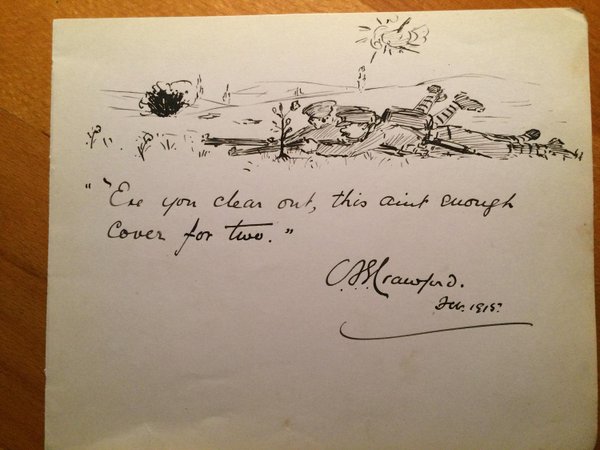 " 'Ere you clear out, this aint enough
Cover for two. "
C.A.S. Crawford.
Feb. 1915.